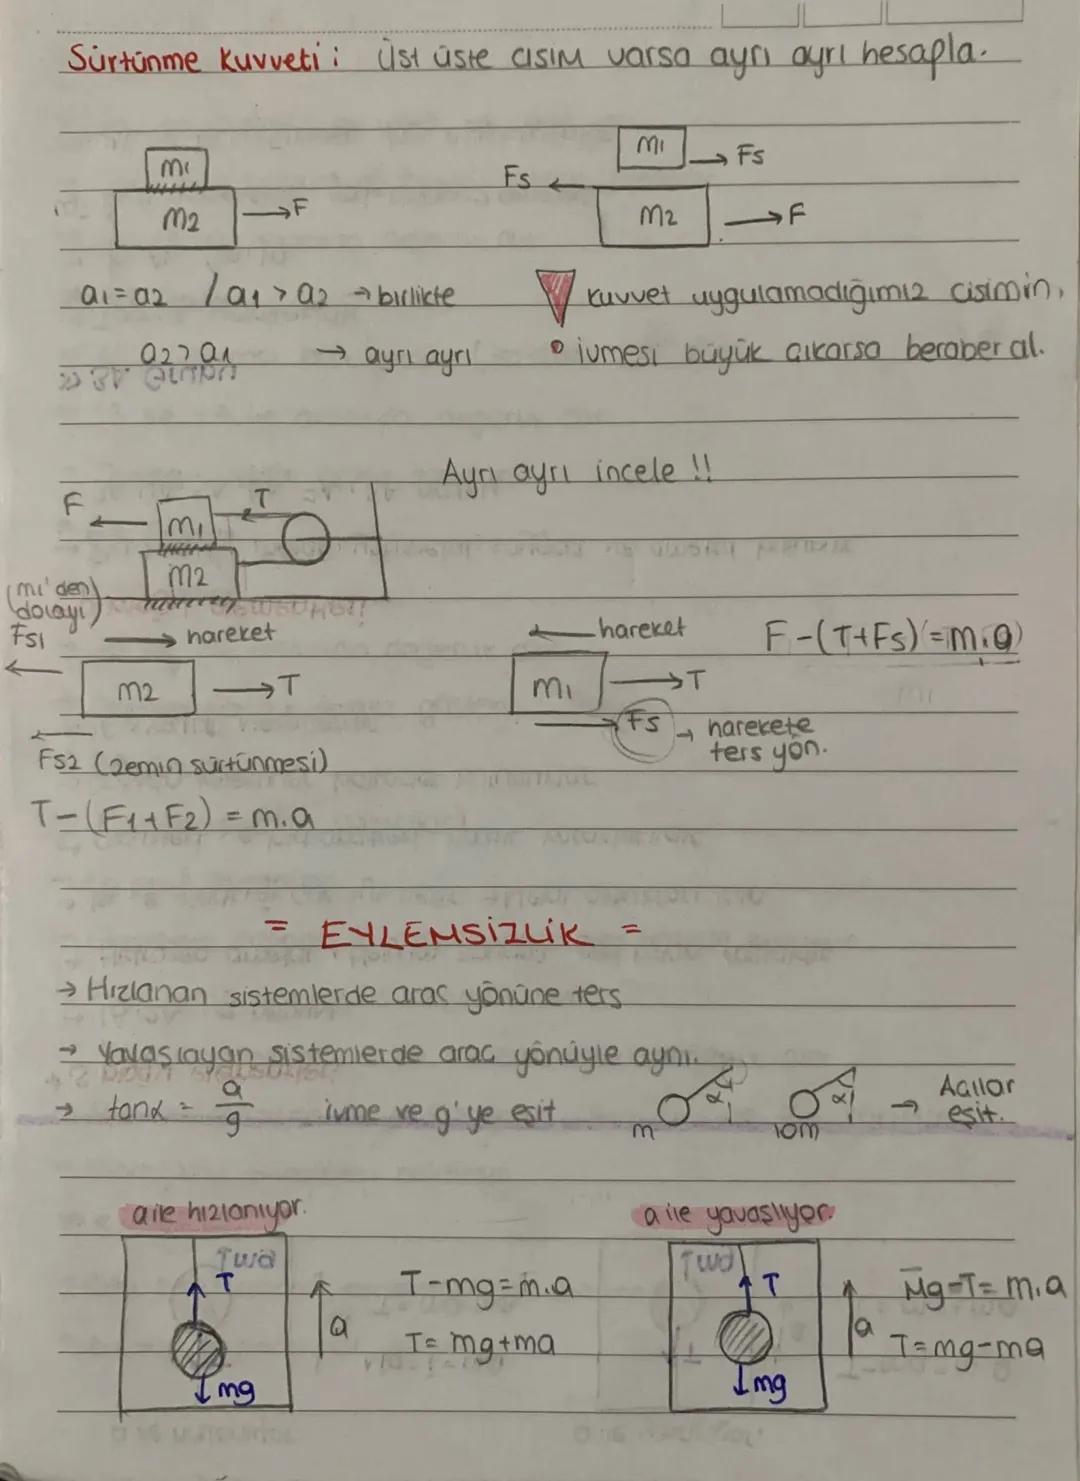 Sürtünme Kuvveti : Üst üste cisim varsa ayrı ayrı hesapla.
m1
m2
F
m1
Fs
Fs
m2
F
a1=a2 / a1 > a2 → birlikte
a2 > a1 → ayrı ayrı
! kuvvet uygulamadığımız cisimin,
ivmesi büyük çıkarsa beraber al.
Ayrı ayrı incele !!
F
m1
T
m2
(m1'den dolayı)
Fs1
hareket
m2
T
Fs2 (zemin sürtünmesi)
T-(F1+F2) = m.a
hareket
m1
T
Fs → harekete
ters yön.
F-(T+Fs)=m.a
= EYLEMSİZLİK =
→ Hızlanan sistemlerde araç yönüne ters
→ Yavaşlayan sistemlerde araç yönüyle aynı.
→ tanα = a/g ivme ve g'ye eşit
α
m
α
10m
→ Açılar
eşit.
a ile hızlanıyor.
T
mg
a
T-mg=m.a
T= mg+ma
a ile yavaşlıyor.
T
mg
a
Mg-T= m.a
T=mg-ma